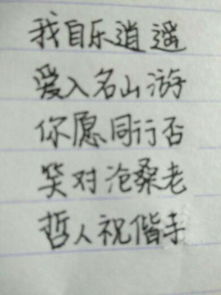 我自乐逍遥
爱入名山游
你愿同行否
笑对沧桑老
哲人祝偕手